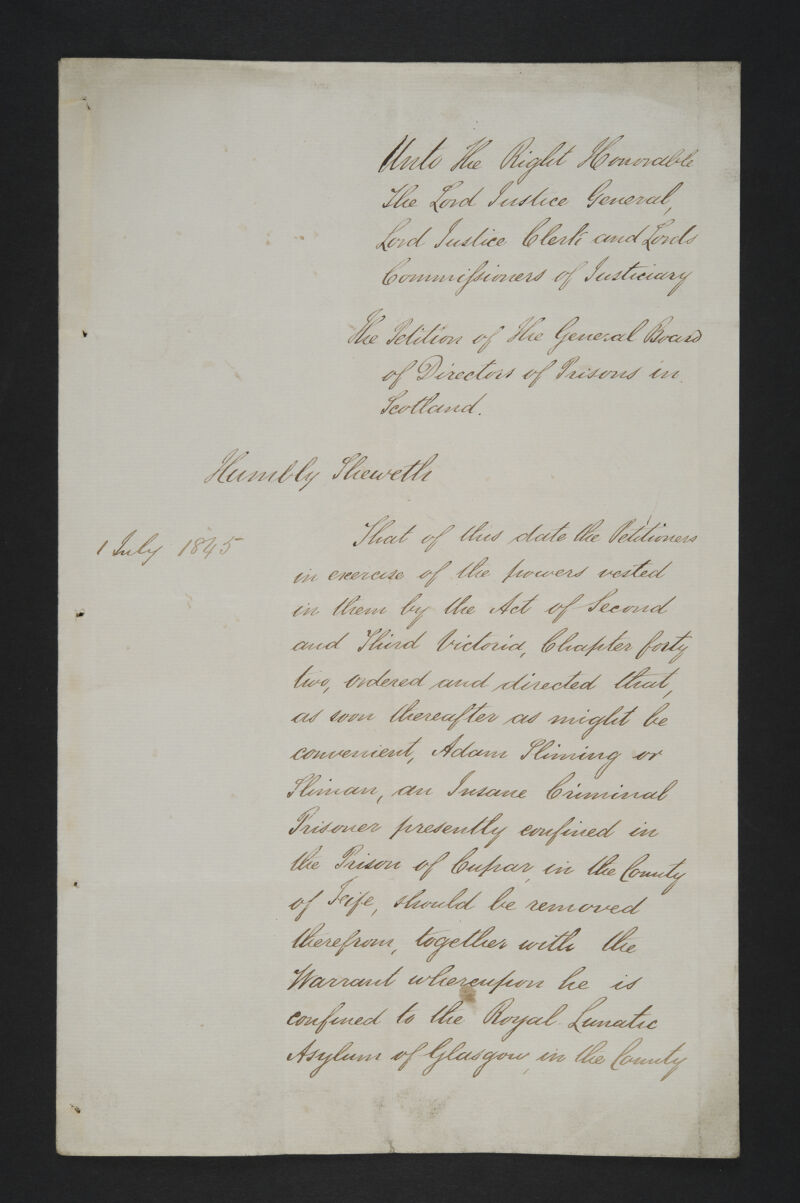 Unto the Right Honorable
The Lord Justice General,
Lord Justice Clerk and Lords
Commissioners of Justiciary
The Petition of the General Board
of Directors of Prisons in
Scotland.
Humbly Sheweth
1 July 1845
That of this date the Petitioners
in exercise of the powers vested
in them by the Act of Second
and Third Victoria, Chapter forty
two, ordered and directed that,
as soon thereafter as might be
convenient, Adam Sliming or
Sliman, an Insane Criminal
Prisoner presently confined in
the Prison of Cupar, in the County
of Fife, should be removed
therefrom, together with the
Warrant whereupon he is
confined to the Royal Lunatic
Asylum of Glasgow, in the County